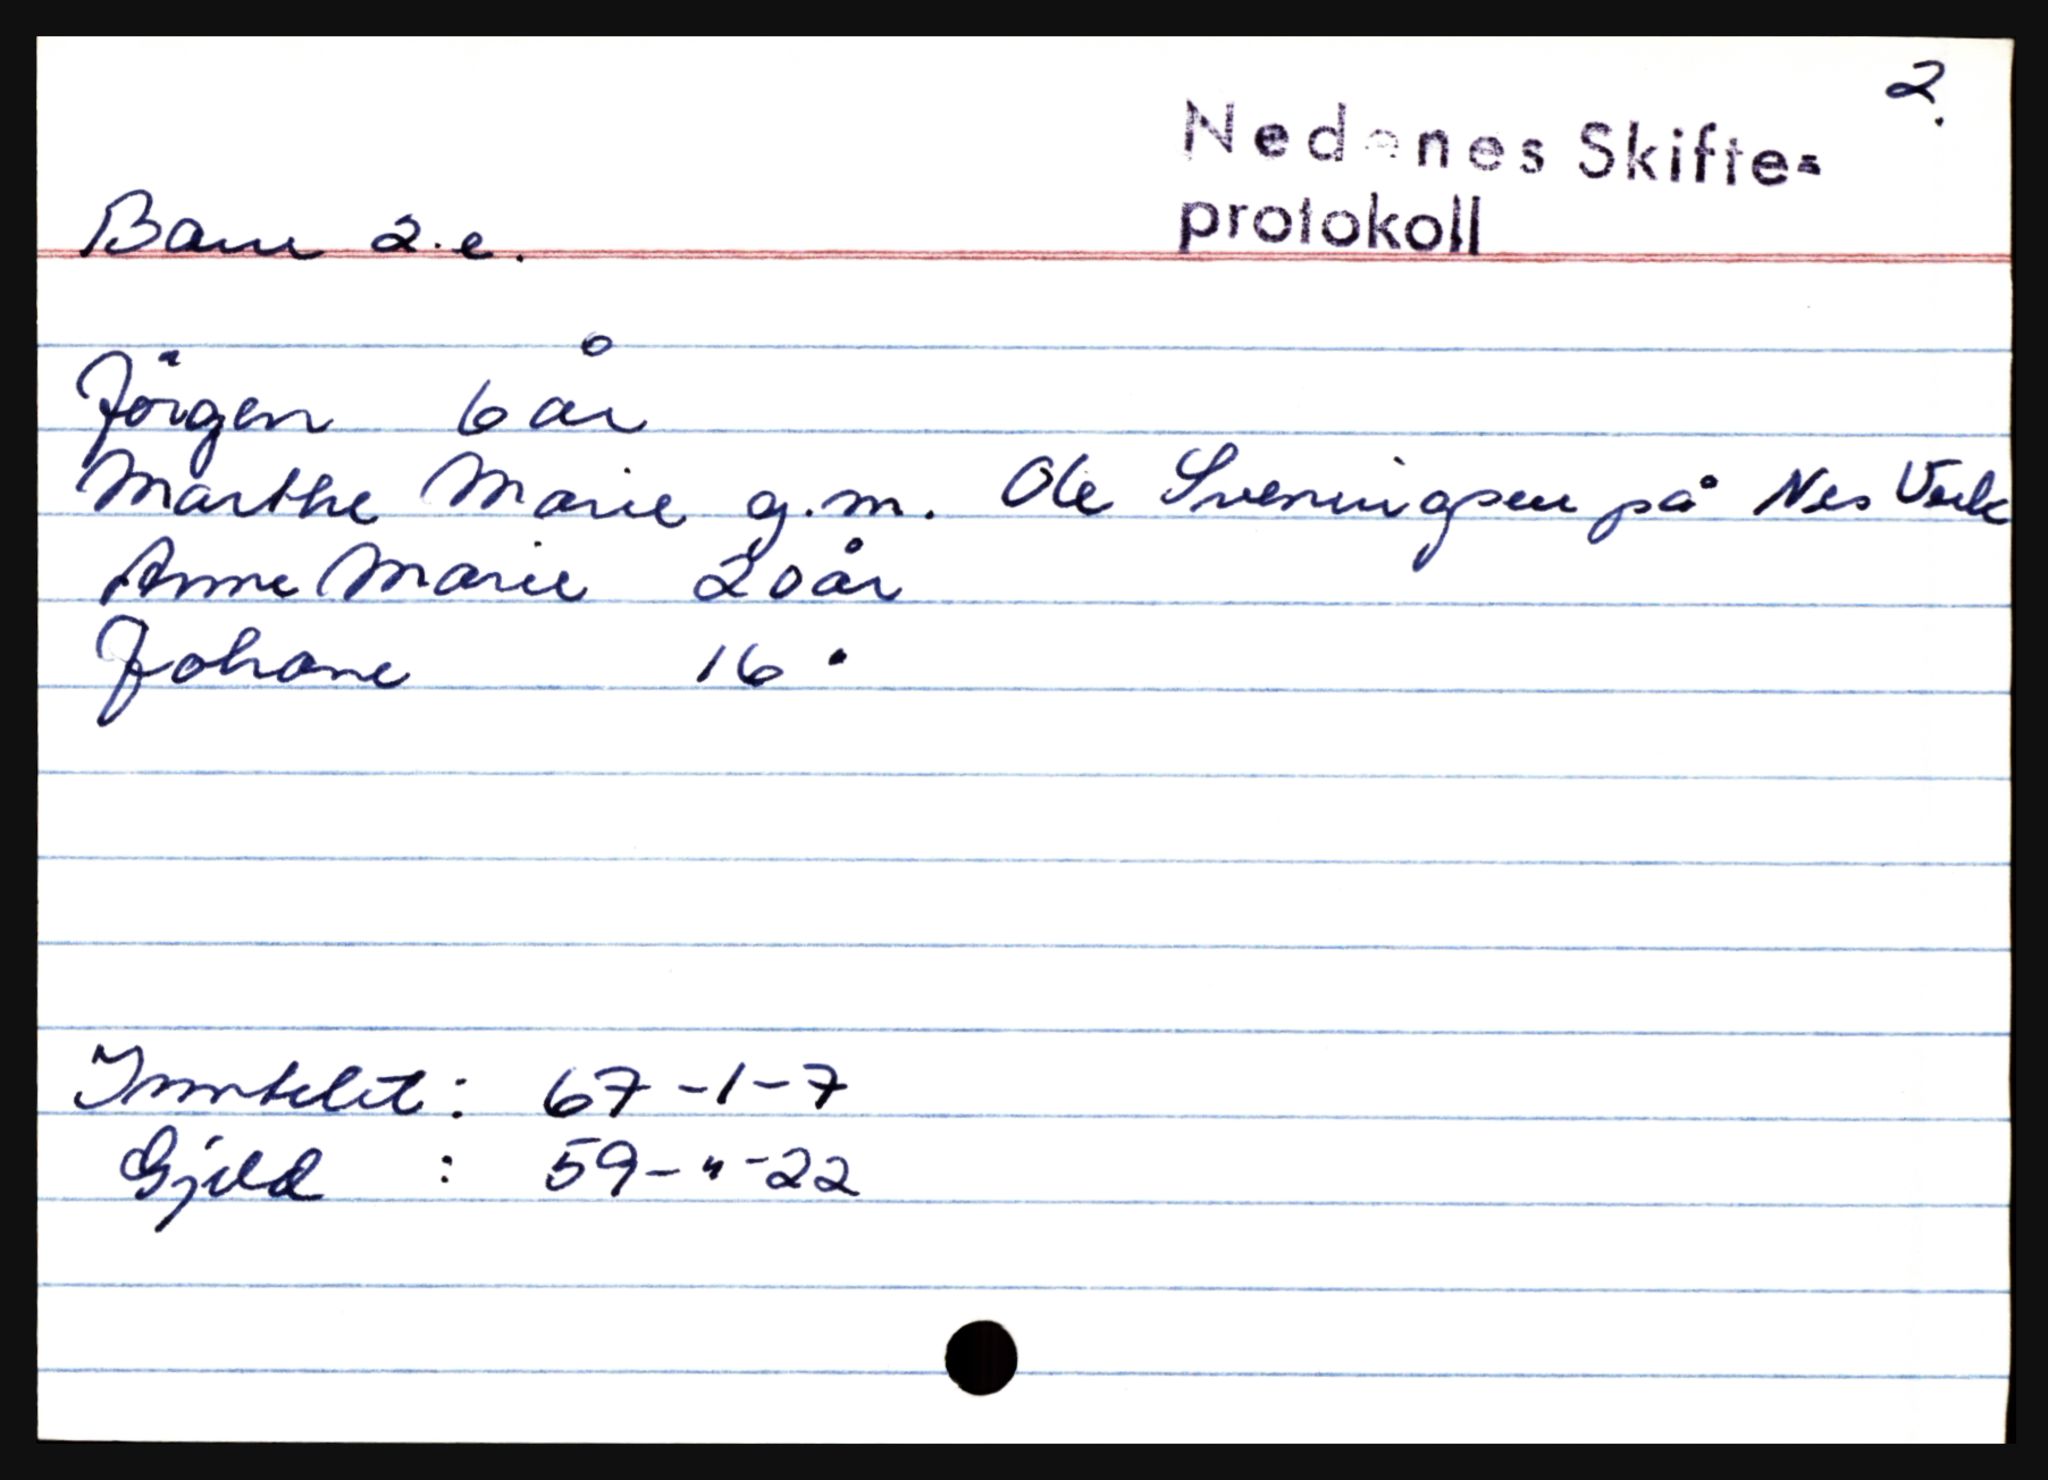 2.
Nedenes Skifte-
protokoll
Barn 2.e.
Jörgen 6 år
Marthe Marie g.m. Ole Sveningsen på Nes Verk
Anne Marie 20 år
Johane 16 "
Inntekt: 67-1-7
Gjeld : 59-"-22